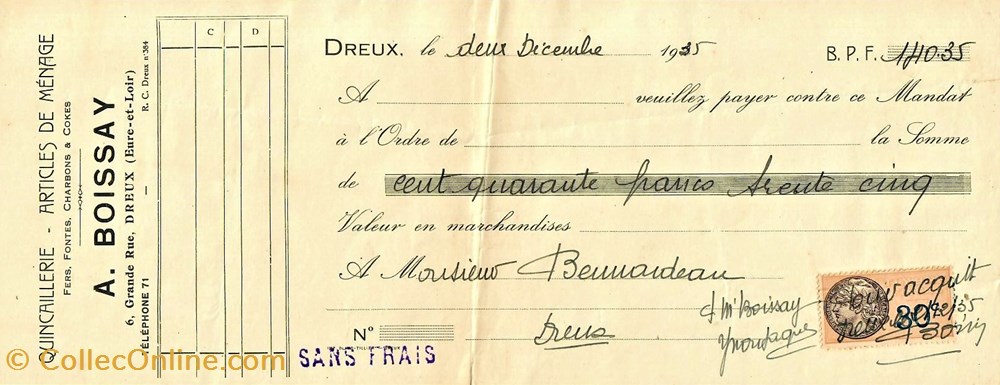 QUINCAILLERIE - ARTICLES DE MÉNAGE
FERS, FONTES, CHARBONS & COKES
A. BOISSAY
6, Grande Rue, DREUX (Eure-et-Loir)
TÉLÉPHONE 71
R. C. Dreux n° 384
C D
DREUX, le deux Décembre 1935 B. P. F. 140.35
A veuillez payer contre ce Mandat
à l'Ordre de la Somme
de cent quarante francs trente cinq
Valeur en marchandises
A Monsieur Bennardeau
Dreux
N°
SANS FRAIS
Pour acquit
Mr Boissay
30
© CollecOnline.com